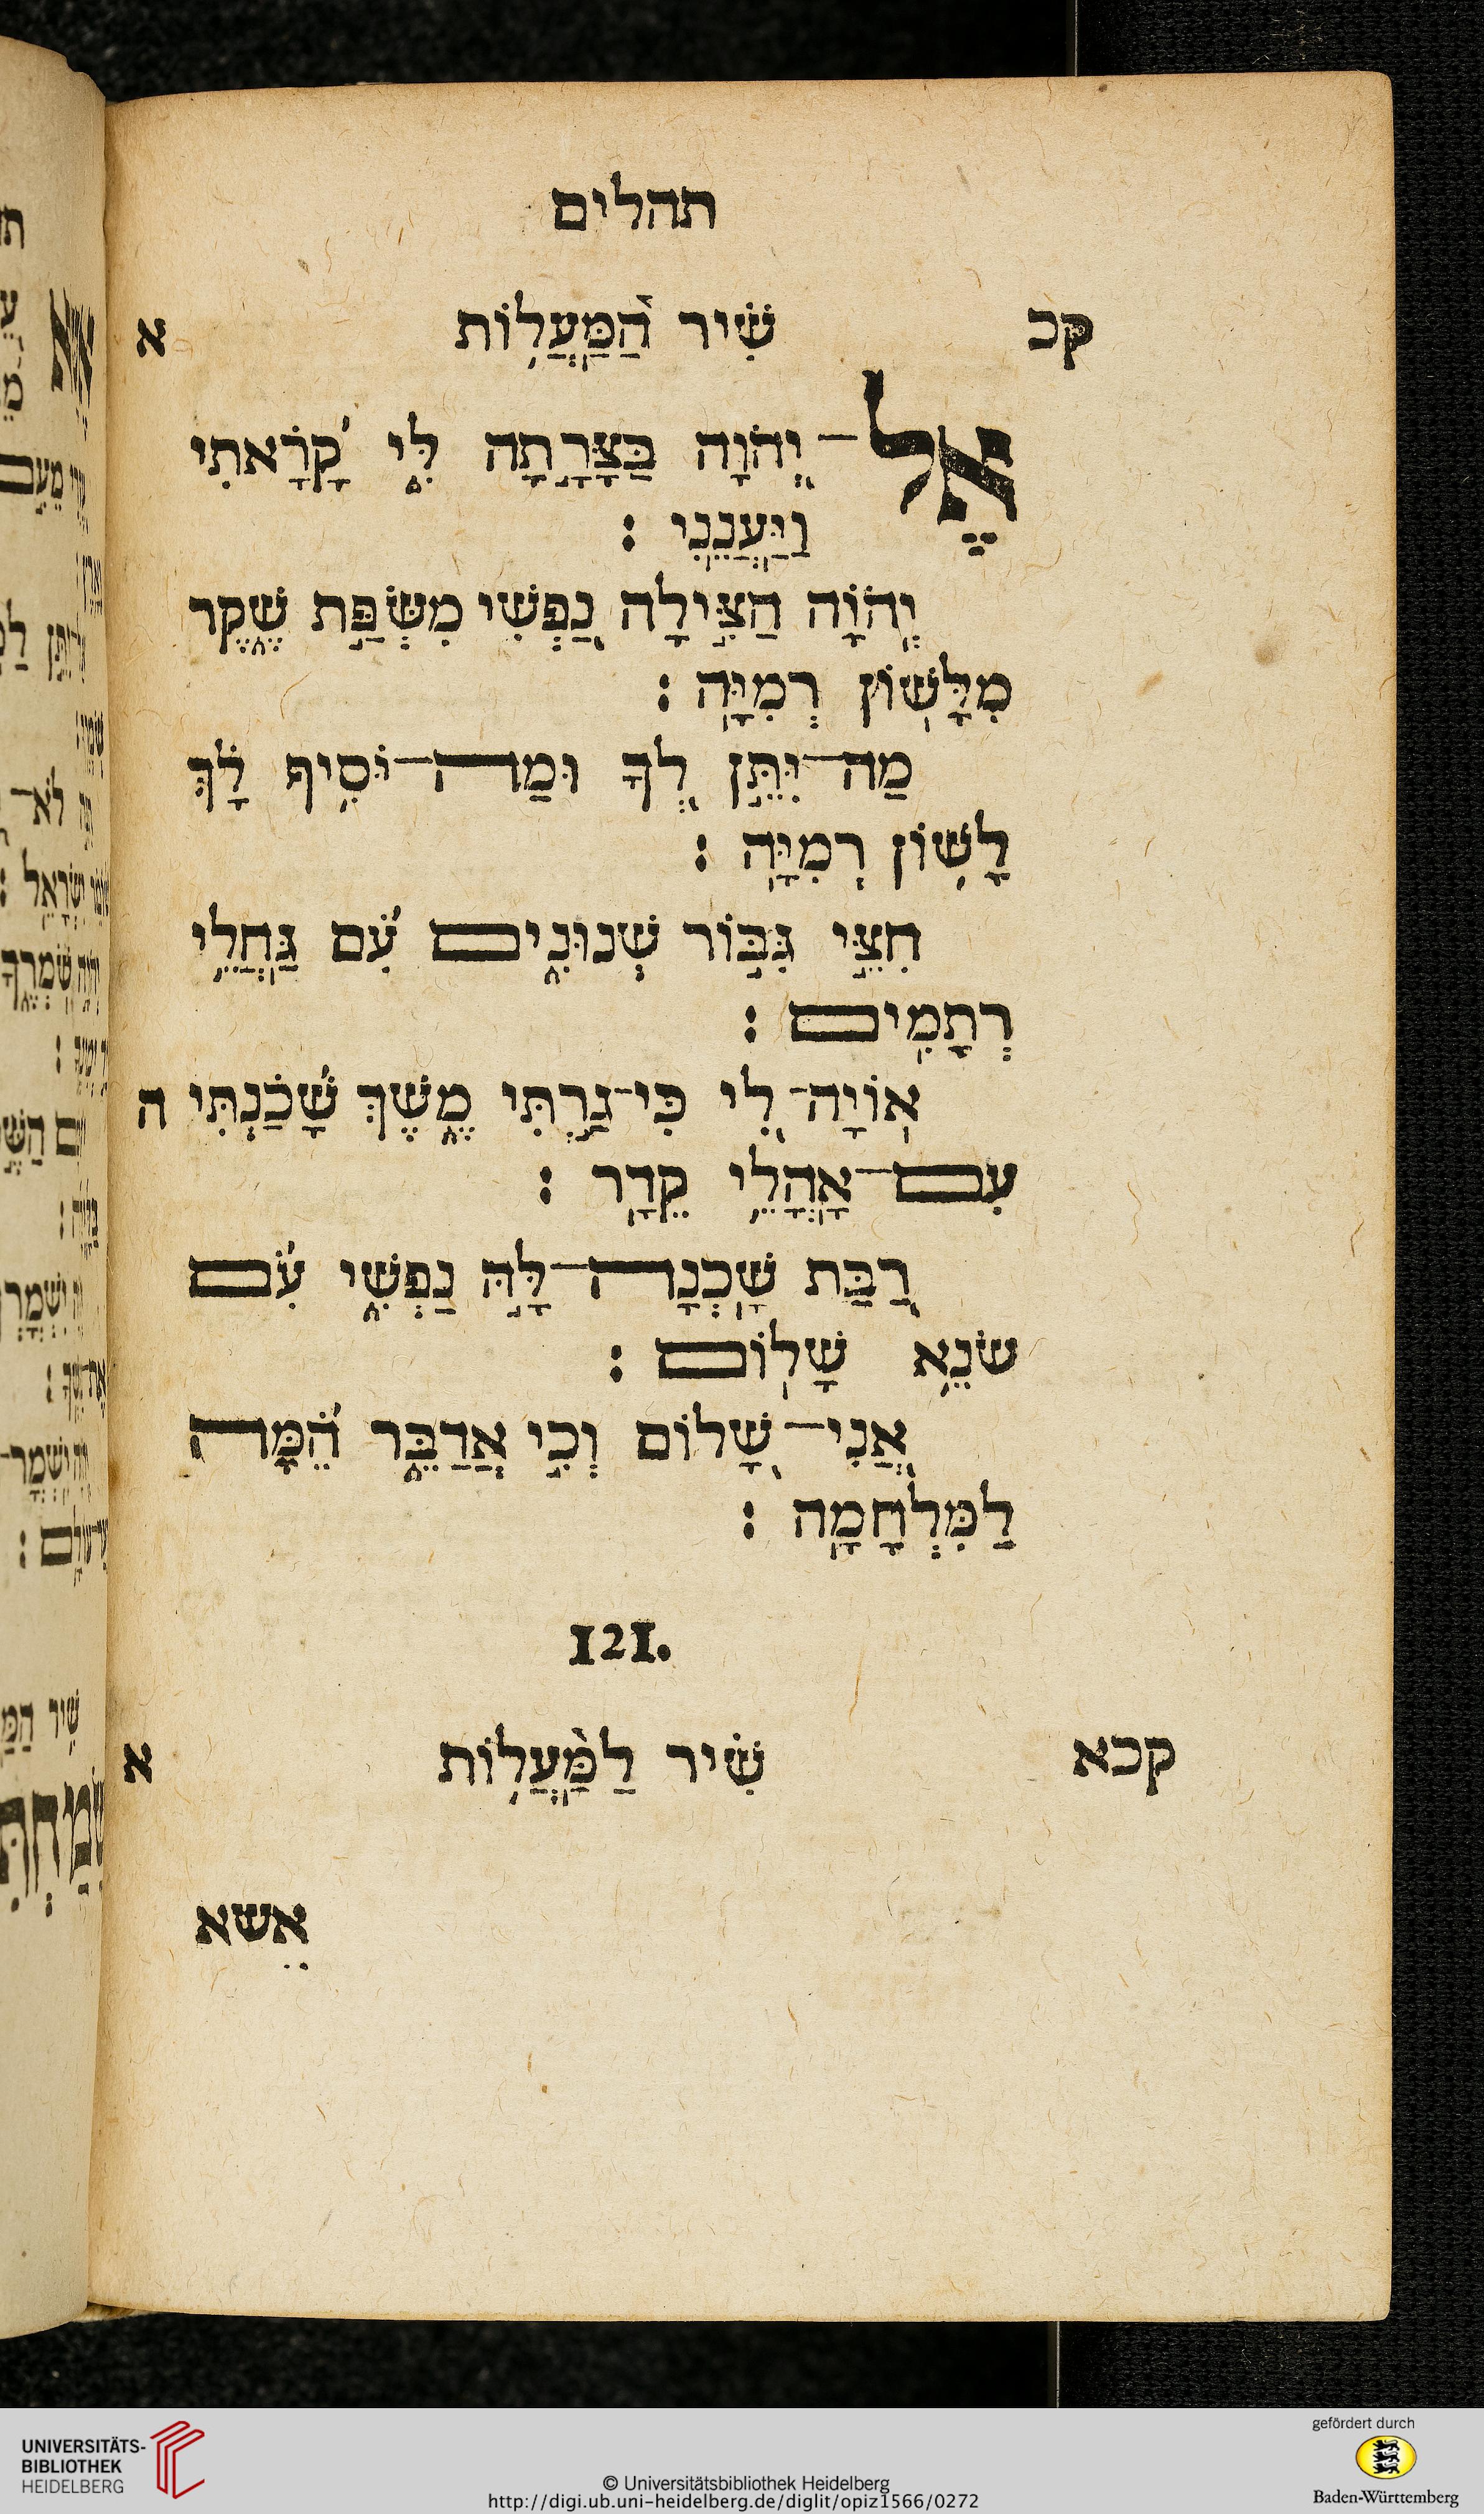 תהלים
קכ שִׁיר הַמַּעֲלוֹת א
אֶל־יְהֹוָה בַּצָּרָתָה לִּי קָרָאתִי
וַיַּעֲנֵנִי :
יְהֹוָה הַצִּילָה נַפְשִׁי מִשְּׂפַת שֶׁקֶר
מִלָּשׁוֹן רְמִיָּה :
מַה־יִּתֵּן לְךָ וּמַה־יּוֹסִיף לָךְ
לָשׁוֹן רְמִיָּה :
חִצֵּי גִבּוֹר שְׁנוּנִים עִם גַּחֲלֵי
רְתָמִים :
אוֹיָה־לִי כִּי־גַרְתִּי מֶשֶׁךְ שָׁכַנְתִּי ה
עִם־אָהֳלֵי קֵדָר :
רַבַּת שָׁכְנָה־לָּהּ נַפְשִׁי עִם
שׂנֵא שָׁלוֹם :
אֲנִי־שָׁלוֹם וְכִי אֲדַבֵּר הֵמָּה
לַמִּלְחָמָה :
121.
קכא שִׁיר לַמַּעֲלוֹת א
אֵשא
UNIVERSITÄTS-
BIBLIOTHEK
HEIDELBERG
© Universitätsbibliothek Heidelberg
http://digi.ub.uni-heidelberg.de/diglit/opiz1566/0272
gefördert durch
Baden-Württemberg